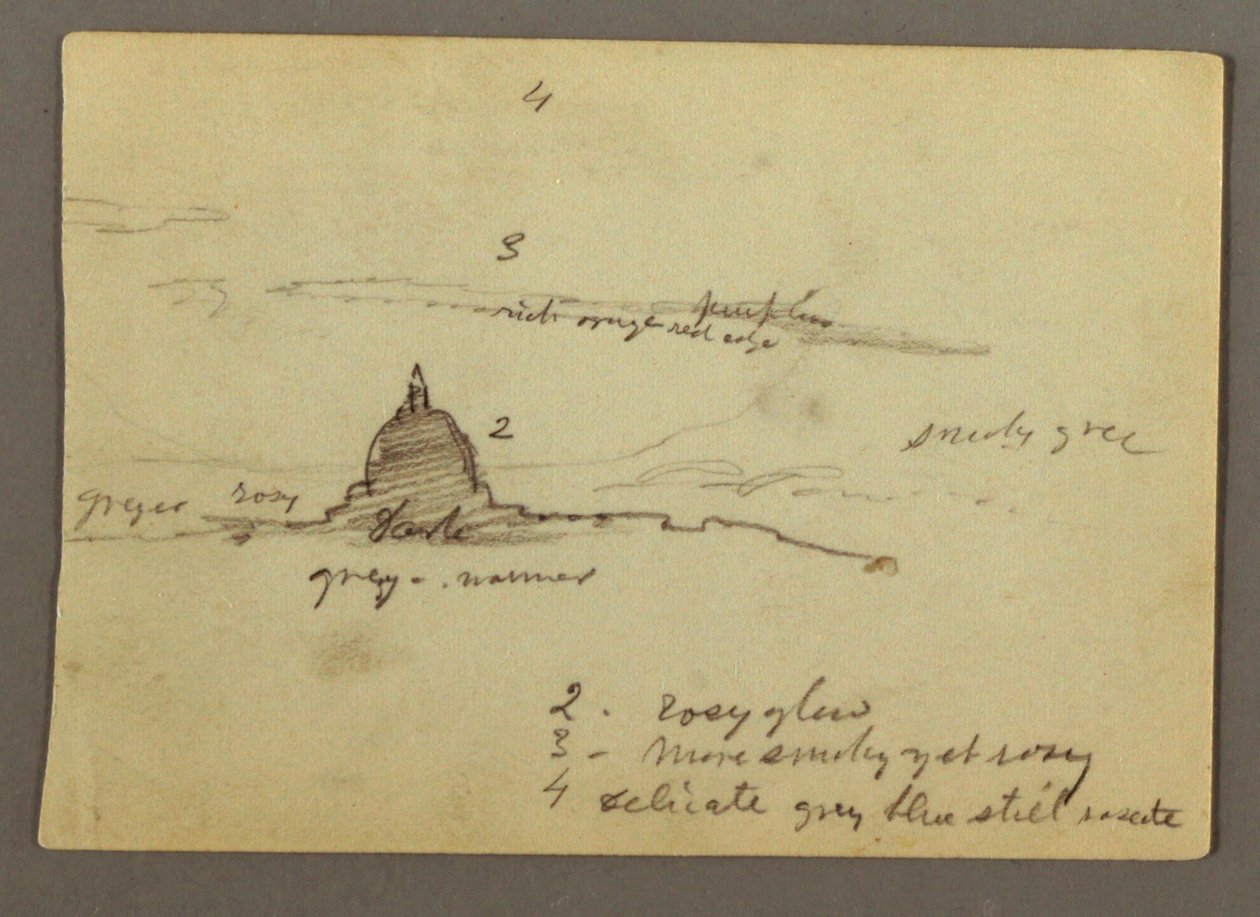 4
3
purplish
rich orange red edge
2
smoky grey
greyer rosy
dark
grey - warmer
2 . rosy glow
3 - more smoky yet rosy
4 delicate grey blue still roseate